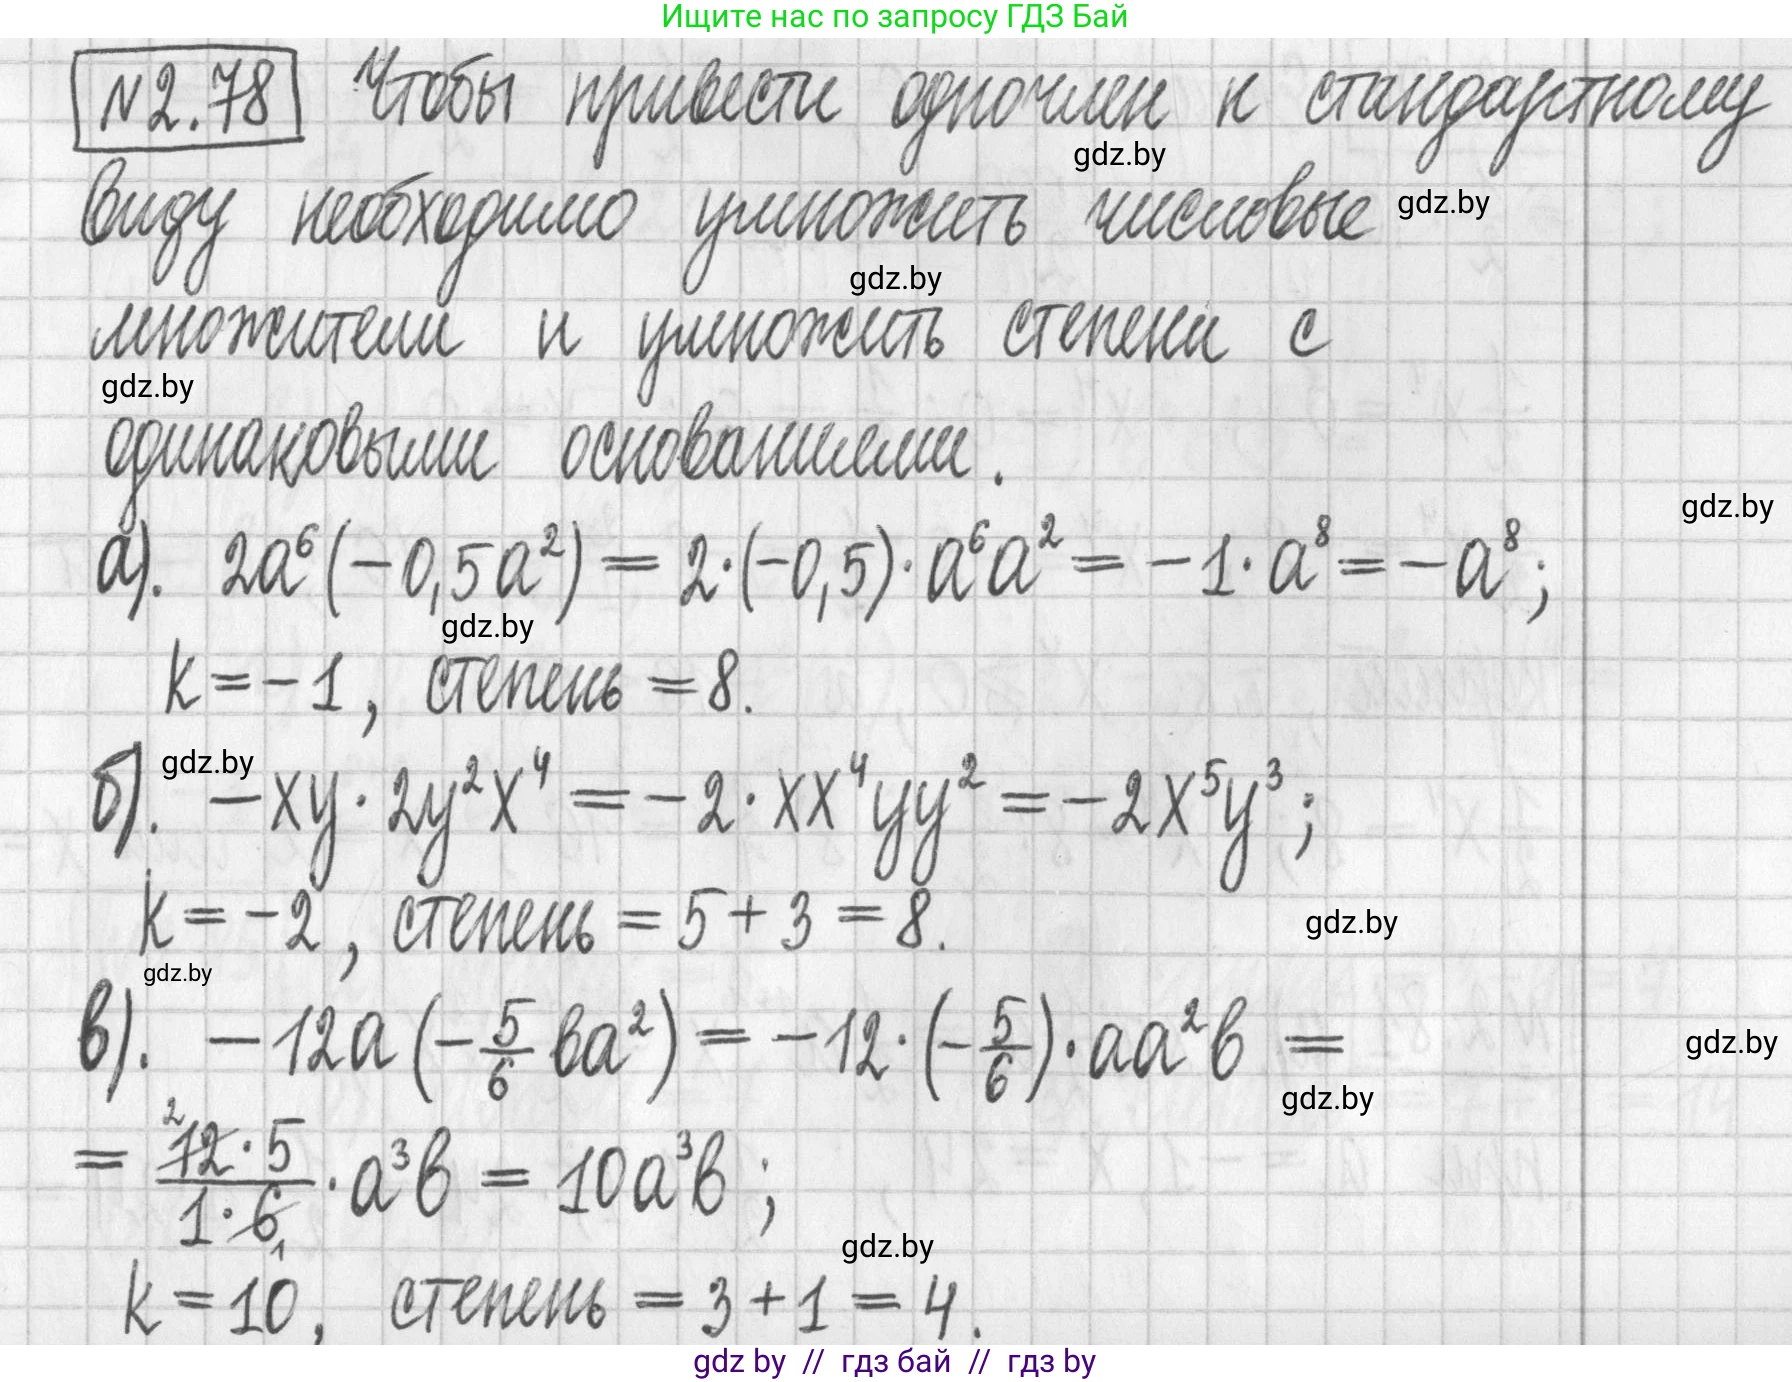 Ищите нас по запросу ГДЗ Бай
№2.78 Чтобы привести одночлен к стандартному
gdz.by
виду необходимо умножить числовые gdz.by
gdz.by
множители и умножить степени с
gdz.by
одинаковыми основаниями.
gdz.by
а). 2a⁶(−0,5a²) = 2·(−0,5)·a⁶a² = −1·a⁸ = −a⁸;
gdz.by
k = −1, степень = 8.
gdz.by
б). −xy·2y²x⁴ = −2·xx⁴yy² = −2x⁵y³;
k = −2, степень = 5 + 3 = 8.
gdz.by
gdz.by
в). −12a(−5/6 ba²) = −12·(−5/6)·aa²b =
gdz.by
gdz.by
= (12·5)/(1·6)·a³b = 10a³b;
2
1
gdz.by
k = 10, степень = 3 + 1 = 4.
gdz by // гдз бай // гдз by